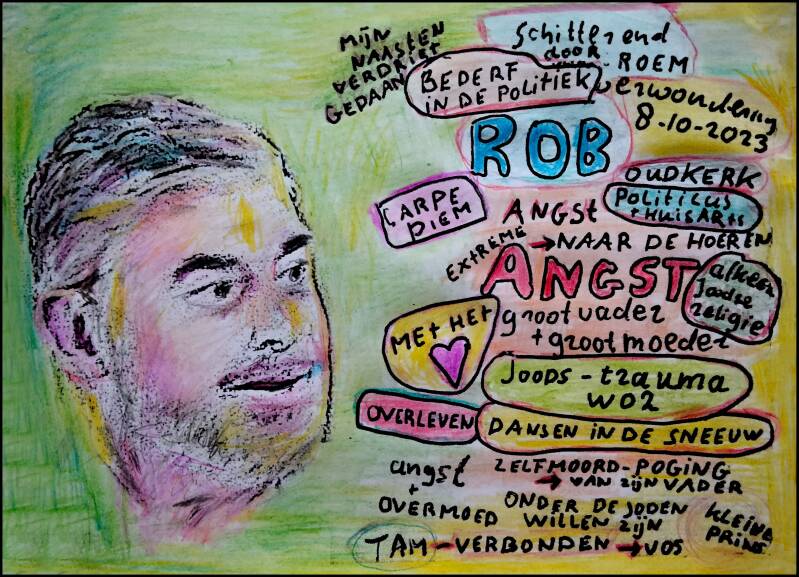 MIJN
NAASTEN
VERDRIET
GEDAAN
Schitterend
door
ROEM
BEDERF
IN DE POLITIEK
verwondering
8-10-2023
ROB
OUDKERK
POLITICUS
+ HUISARTS
CARPE
DIEM
ANGST
→ NAAR DE HOEREN
EXTREME
ANGST
afkeer
Joodse
religie
MET HET
grootvader
+ grootmoeder
JOODS - trauma
WO2
OVERLEVEN
DANSEN IN DE SNEEUW
angst
+
OVERMOED
ZELFMOORD-POGING
→ VAN ZIJN VADER
ONDER DE JODEN
WILLEN ZIJN
KLEINE
PRINS
TAM - VERBONDEN → VOS